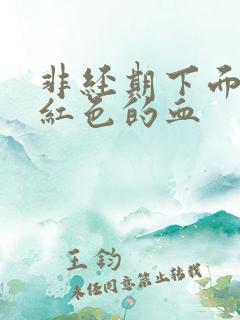 非经期下面
红色的血
王钧
未经同意禁止转载